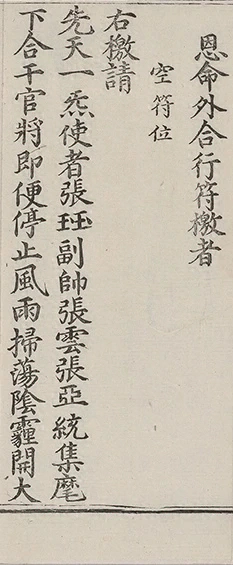 恩命外合行符檄者
空符位
右檄請
先天一炁使者張珏副帥張雲張亞統集麾
下合干官將即便停止風雨掃蕩陰霾開大